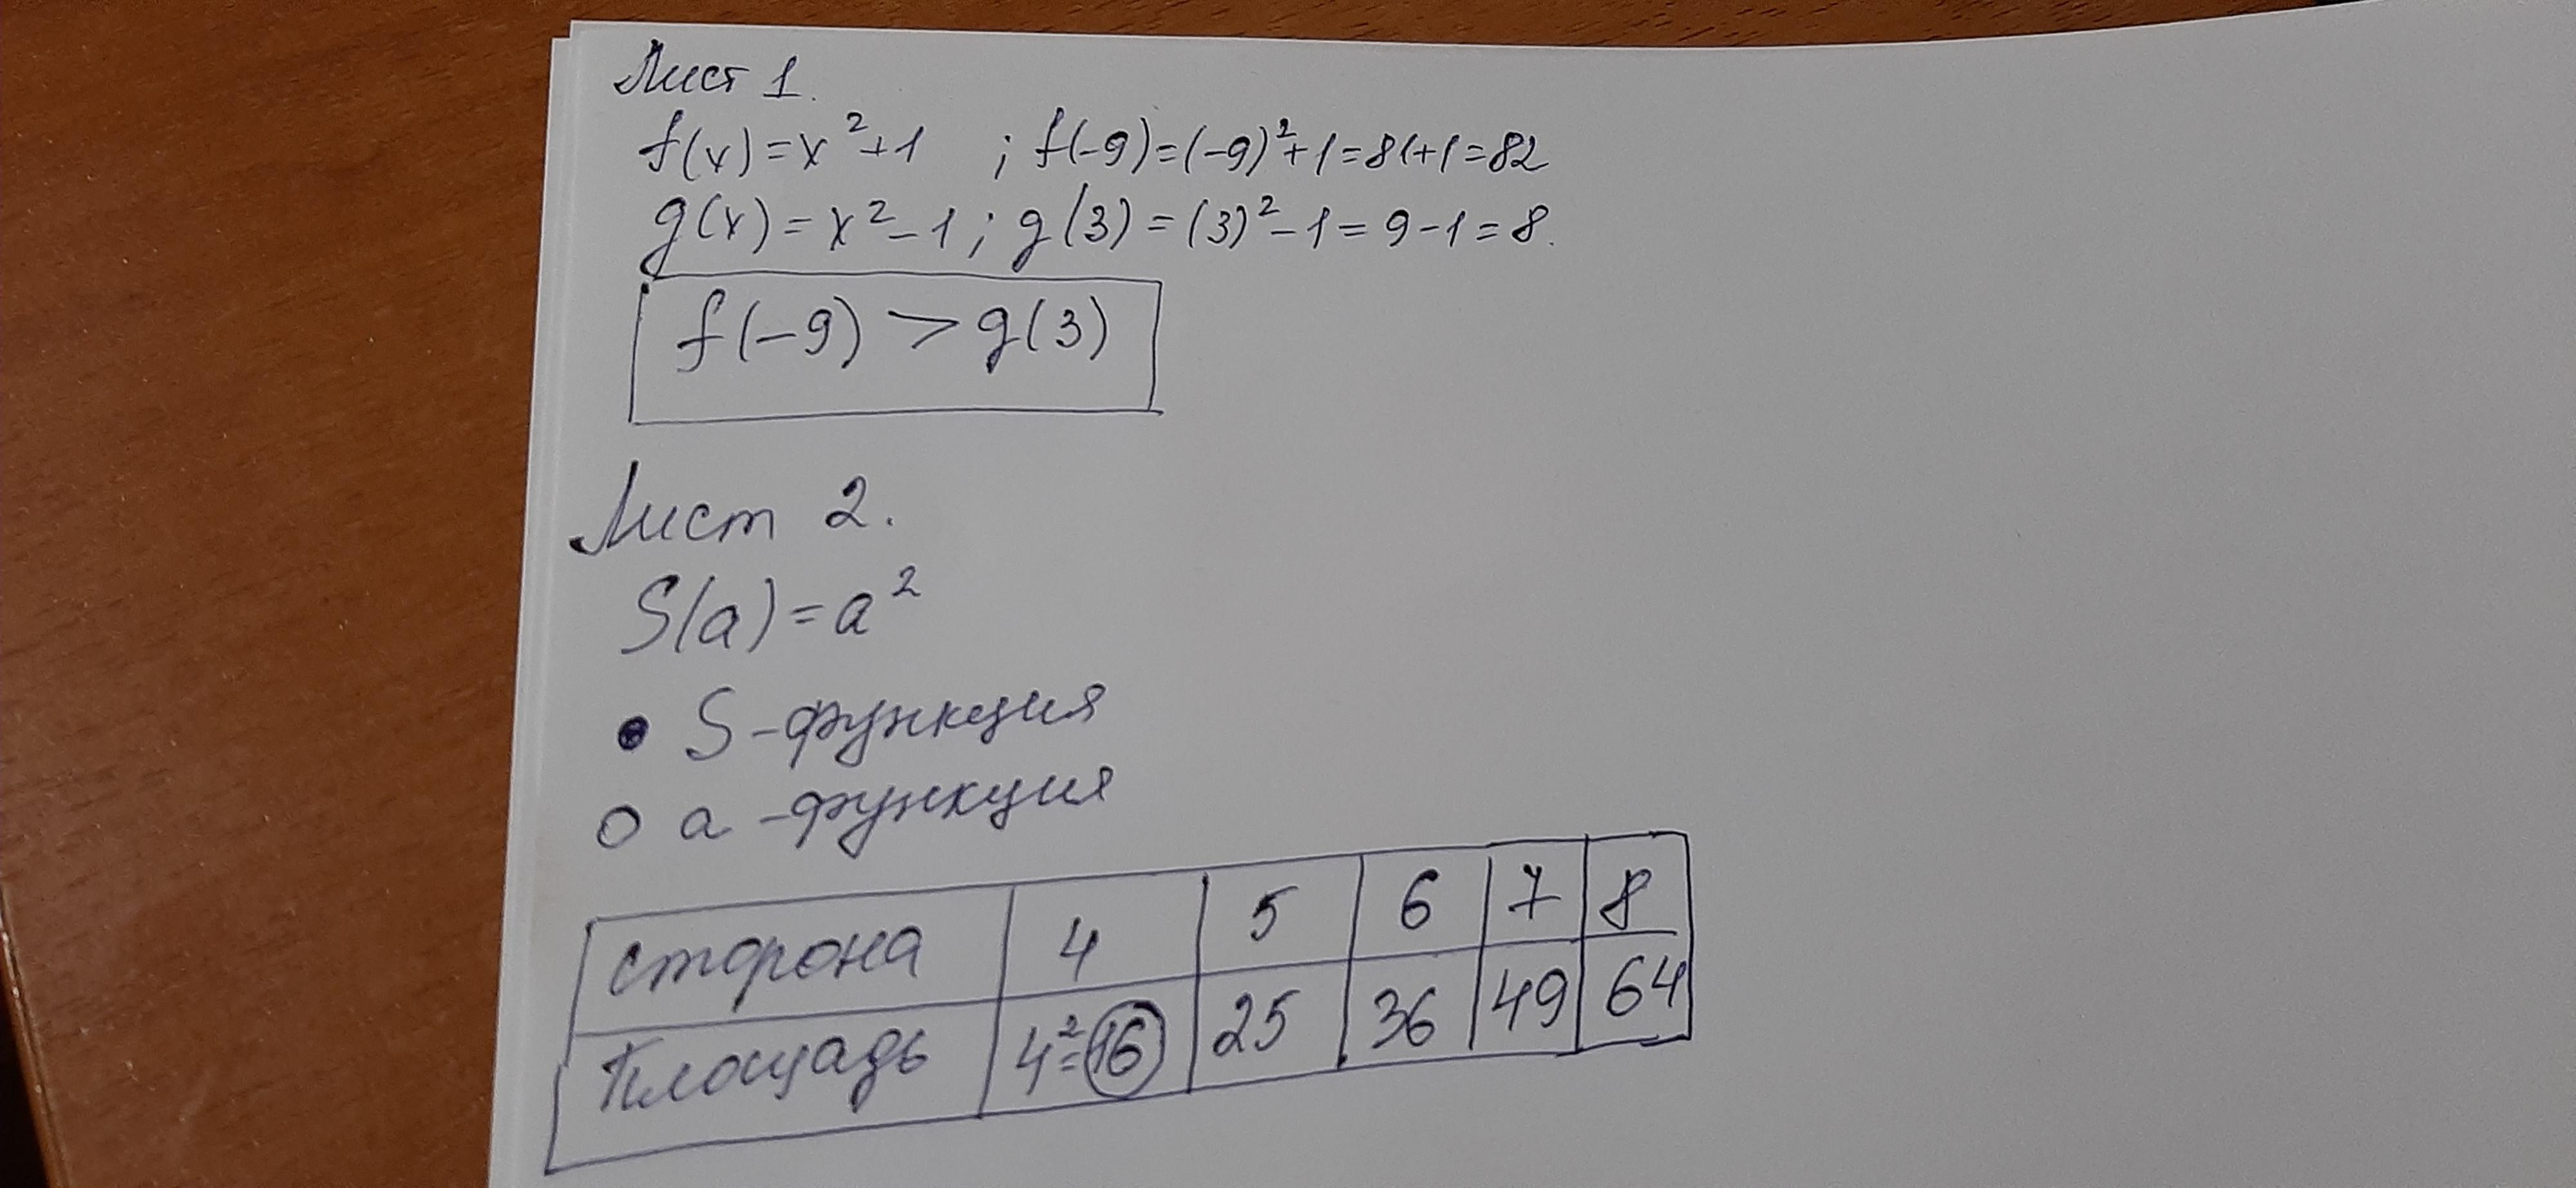 Лист 1.
f(x)=x²+1 ; f(-9)=(-9)²+1=81+1=82
g(x)=x²-1; g(3)=(3)²-1=9-1=8.
f(-9)>g(3)
Лист 2.
S(a)=a²
• S-функция
○ a-функция
сторона 4 5 6 7 8
Площадь 4²=16 25 36 49 64